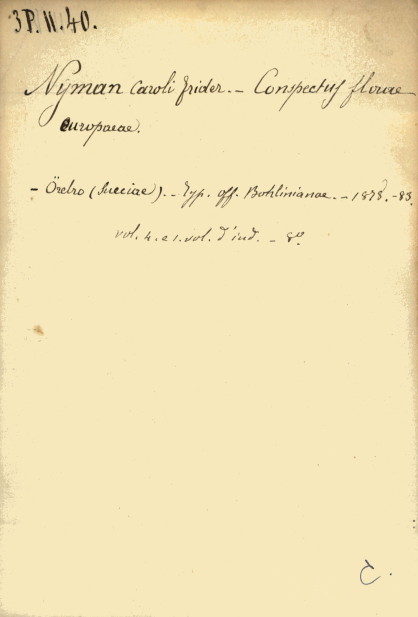 3 P. II. 40.
Nÿman Caroli Frider. – Conspectus florae
europaeae.
– Örebro (Sueciae). – Typ. off. Bohlinianae. – 1878. – 83.
vol. 4. e 1. vol. d'ind. – 8º
C.